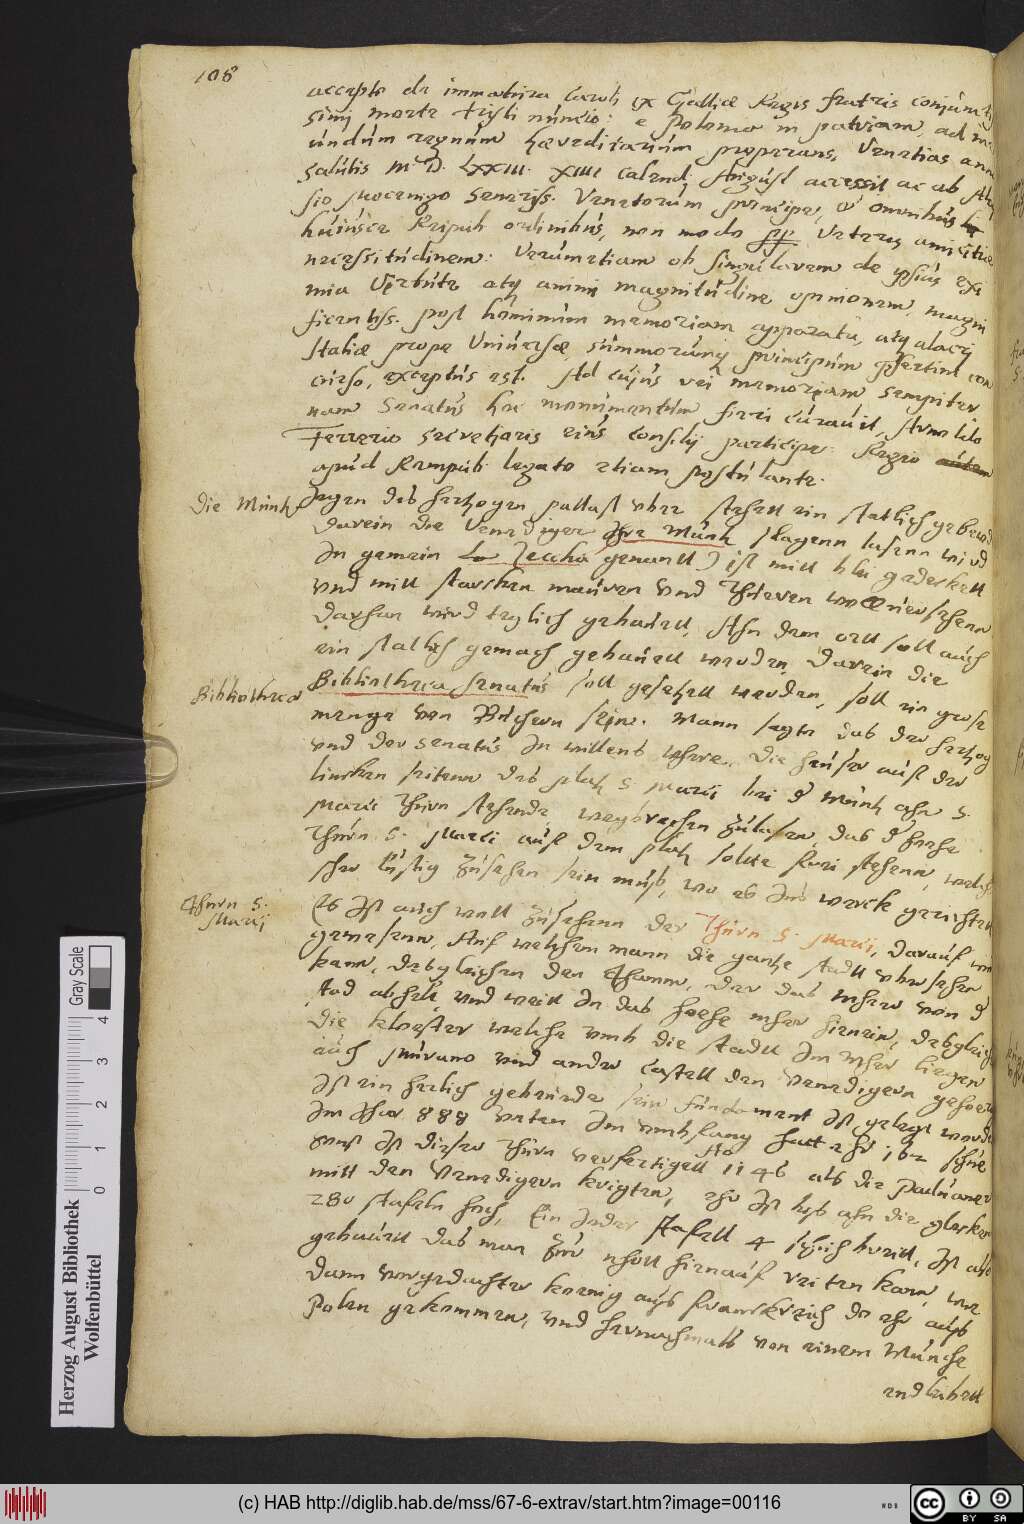 108
accepto de immatura Caroli IX Galliæ Regis fratris conjunctis
simi morte tristi nuncio: e Polonia in patriam, ad
undum regnum hæreditarium properans, Venetias anno
salutis M D. LXXIIII. XIIII Calend. August accessit ac ab
sio Mocenigo Sereniss. Venetorum principe, & omnibus
huiusce Reipub. ordinibus, non modo pp. Veteris amicitiæ
necessitudinem: Verumetiam ob singularem de ipsius exi
mia Virtute atq animi magnitudine opinionem, magni
ficentiss. post hominum memoriam apparatu, atq alacri
Italiæ prope Universæ summorumq principum præsertim con
curso, exceptus est. Ad cujus rei memoriam sempiter
nam Senatus hoc monumentum fieri curavit, Arnoldo
Ferrerio secretioris eius consilij participe Regio
apud Rempub. legato etiam postulante.
Die Müntz
Jegen des hertzogen pallast vber stehett ein statlich gebeud
darein die Venediger ihre Müntz slagenn lasenn wird
In gemein La Zeccha genantt) ist mitt blei gedeckett
vnd mitt starcken mauren vnd Thüeren woll versehenn
darhan wird teglich gebauett, Ahn dem ortt soll auch
ein statlich gemach gebauett werden, darein die
Bibliotheca
Bibliotheca senatus soll gesetzett werden, soll ein grose
menge von Büchern sein. Mann sagte das der hertzog
vnd der senatus In willens where, die heuser auff der
lincken seitenn des platz S. Marci bei d Müntz ahn S.
Marci thurn stehende, wegbrechen zulasen, das d hoehe
Thurn S. Marci auff dem platz solte frei stehenn, welches
sher lüstig zusehen sein muß, wo es Ins werck gerichtet
Thurn S.
Marci
Es Ist auch woll zusehenn der Thurn S. Marci, darauff wir
gewesenn, Auf welchem mann die gantze stadt vbersehen
kann, desgleichen den Thamm, der das Mher von d
stad abhelt, vnd weitt In das hoehe mher hienein, desgleichen
die kloester welche vmb die stadtt Im Mher liegen
auch Murano vnd ander castell den Venedigern gehoerende
Ist ein herlich gebeude sein fundament Ist gelegt worden
Im Jhar 888 vnten Im vmbfang hatt ehr 162 schue
sonst Ist dieser Thurn verfertigett Ao 1146 als die Paduaner
mitt den Venedigern krigten, ehr Ist bis ahn die glocken
280 staffeln hoch, Ein Jeder staffell 4 schuch breitt, Ist also
gebauett das man zur nhott hienauff reiten kann, wie
dann vorgedachter koenig auß Franckreich do ehr auß
Polen gekommen, vnd hernachmals von einem Münche
endleibett
Gray Scale
0 1 2 3 4
Herzog August Bibliothek
Wolfenbüttel
(c) HAB http://diglib.hab.de/mss/67-6-extrav/start.htm?image=00116
WDB
cc
BY SA